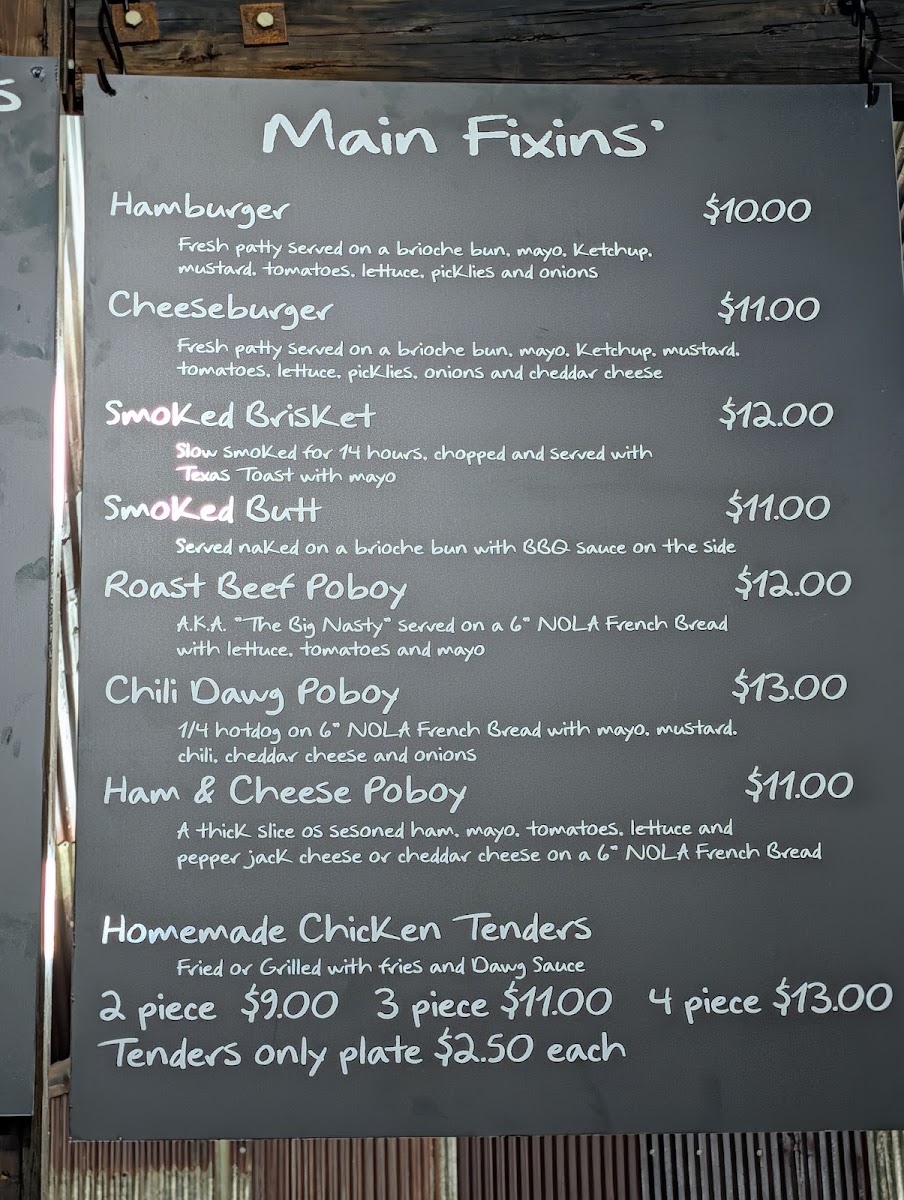 s
Main Fixins'
Hamburger $10.00
Fresh patty served on a brioche bun, mayo, Ketchup,
mustard, tomatoes, lettuce, picklies and onions
Cheeseburger $11.00
Fresh patty served on a brioche bun, mayo, Ketchup, mustard,
tomatoes, lettuce, picklies, onions and cheddar cheese
Smoked Brisket $12.00
Slow smoked for 14 hours, chopped and served with
Texas Toast with mayo
Smoked Butt $11.00
Served naked on a brioche bun with BBQ sauce on the side
Roast Beef Poboy $12.00
A.K.A. "The Big Nasty" served on a 6" NOLA French Bread
with lettuce, tomatoes and mayo
Chili Dawg Poboy $13.00
1/4 hotdog on 6" NOLA French Bread with mayo, mustard,
chili, cheddar cheese and onions
Ham & Cheese Poboy $11.00
A thick slice os sesoned ham, mayo, tomatoes, lettuce and
pepper jack cheese or cheddar cheese on a 6" NOLA French Bread
Homemade Chicken Tenders
Fried or Grilled with fries and Dawg Sauce
2 piece $9.00 3 piece $11.00 4 piece $13.00
Tenders only plate $2.50 each